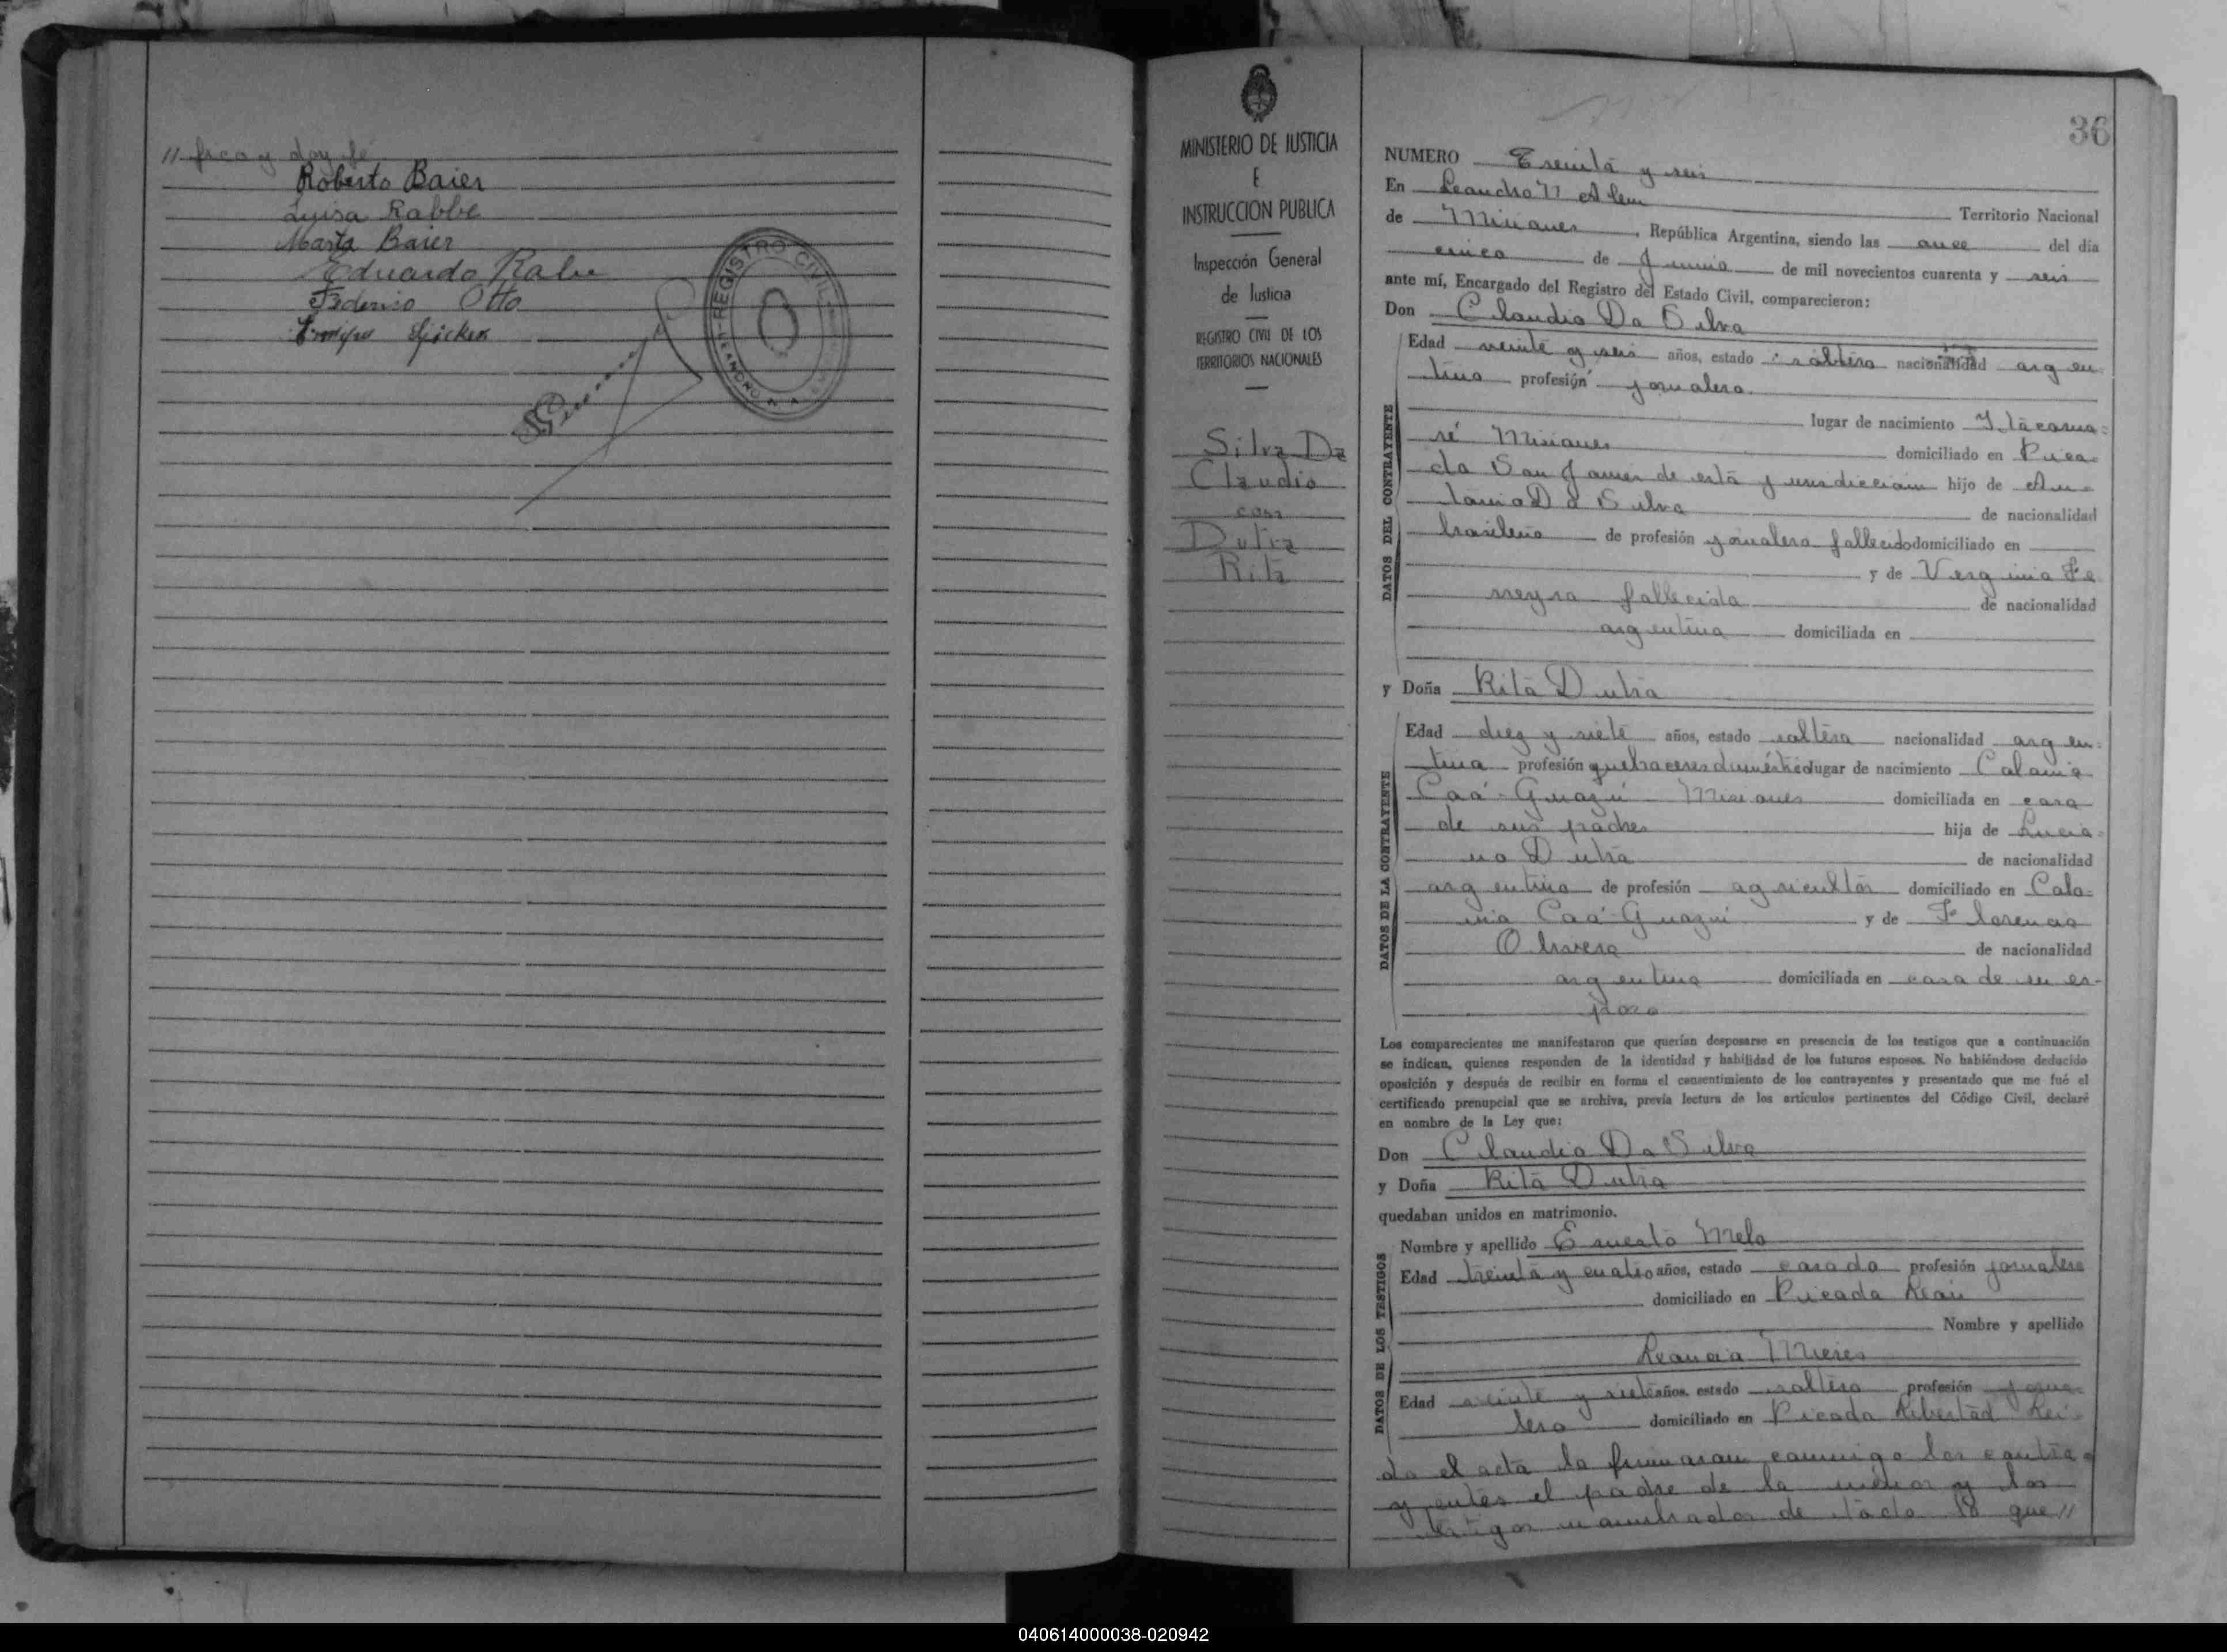 // fico y doy fe
Roberto Baier
Luisa Rabbe
Marta Baier
Eduardo Rabe
Federico Otto
REGISTRO CIVIL
LEANDRO N. A
36
MINISTERIO DE JUSTICIA
E
INSTRUCCION PUBLICA
Inspección General
de Justicia
REGISTRO CIVIL DE LOS
TERRITORIOS NACIONALES
Silva Da
Claudio
con
Dutra
Rita
NUMERO Treinta y seis
En Leandro N Alem Territorio Nacional
de Misiones, República Argentina, siendo las once del día
cinco de Junio de mil novecientos cuarenta y seis
ante mí, Encargado del Registro del Estado Civil, comparecieron:
Don Claudio Da Silva
DATOS DEL CONTRAYENTE
Edad veinte y seis años, estado soltero nacionalidad argen-
tino profesión jornalero
lugar de nacimiento Itacarua=
ré Misiones domiciliado en Pica=
da San Javier de esta jurisdiccion hijo de An=
tonio Da Silva de nacionalidad
brasileño de profesión jornalero fallecido domiciliado en
y de Verginia Fe
rreyra fallecida de nacionalidad
argentina domiciliada en
y Doña Rita Dutra
DATOS DE LA CONTRAYENTE
Edad diez y siete años, estado soltera nacionalidad argen=
tina profesión quehaceres domésticos lugar de nacimiento Colonia
Caá-Guazú Misiones domiciliada en casa
de sus padres hija de Lucia=
no Dutra de nacionalidad
argentino de profesión agricultor domiciliado en Colo=
nia Caá-Guazú y de Florencia
Olivera de nacionalidad
argentina domiciliada en casa de su es-
poso
Los comparecientes me manifestaron que querían desposarse en presencia de los testigos que a continuación
se indican, quienes responden de la identidad y habilidad de los futuros esposos. No habiéndose deducido
oposición y después de recibir en forma el consentimiento de los contrayentes y presentado que me fué el
certificado prenupcial que se archiva, previa lectura de los artículos pertinentes del Código Civil, declaré
en nombre de la Ley que:
Don Claudio Da Silva
y Doña Rita Dutra
quedaban unidos en matrimonio.
DATOS DE LOS TESTIGOS
Nombre y apellido Ernesto Melo
Edad treinta y cuatro años, estado casado profesión jornalero
domiciliado en Picada
Nombre y apellido
Leoncio Mieres
Edad veinte y siete años, estado soltero profesión jorna=
lero domiciliado en Picada Libertad Lei=
do el acta la firmaron conmigo los contra=
yentes el padre de la menor y los
testigos nombrados de todo lo que //
040614000038-020942